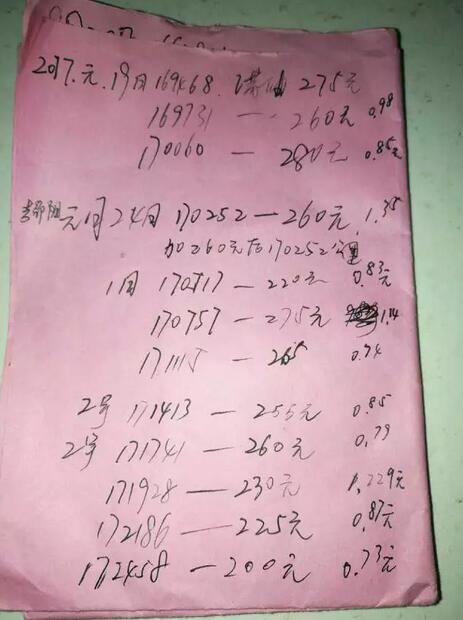 2017.元.19日 169468. 275元
169731 — 260元 0.98
170060 — 280元 0.85元
元月24日 170252 — 260元 1.35
加260元后170252公里
1月 170517 — 220元 0.83元
170757 — 275元 1.14
171115 — 265 0.74
2号 171413 — 255元 0.85
2号 171741 — 260元 0.79
171928 — 230元 1.229元
172186 — 225元 0.87元
172458 — 200元 0.73元